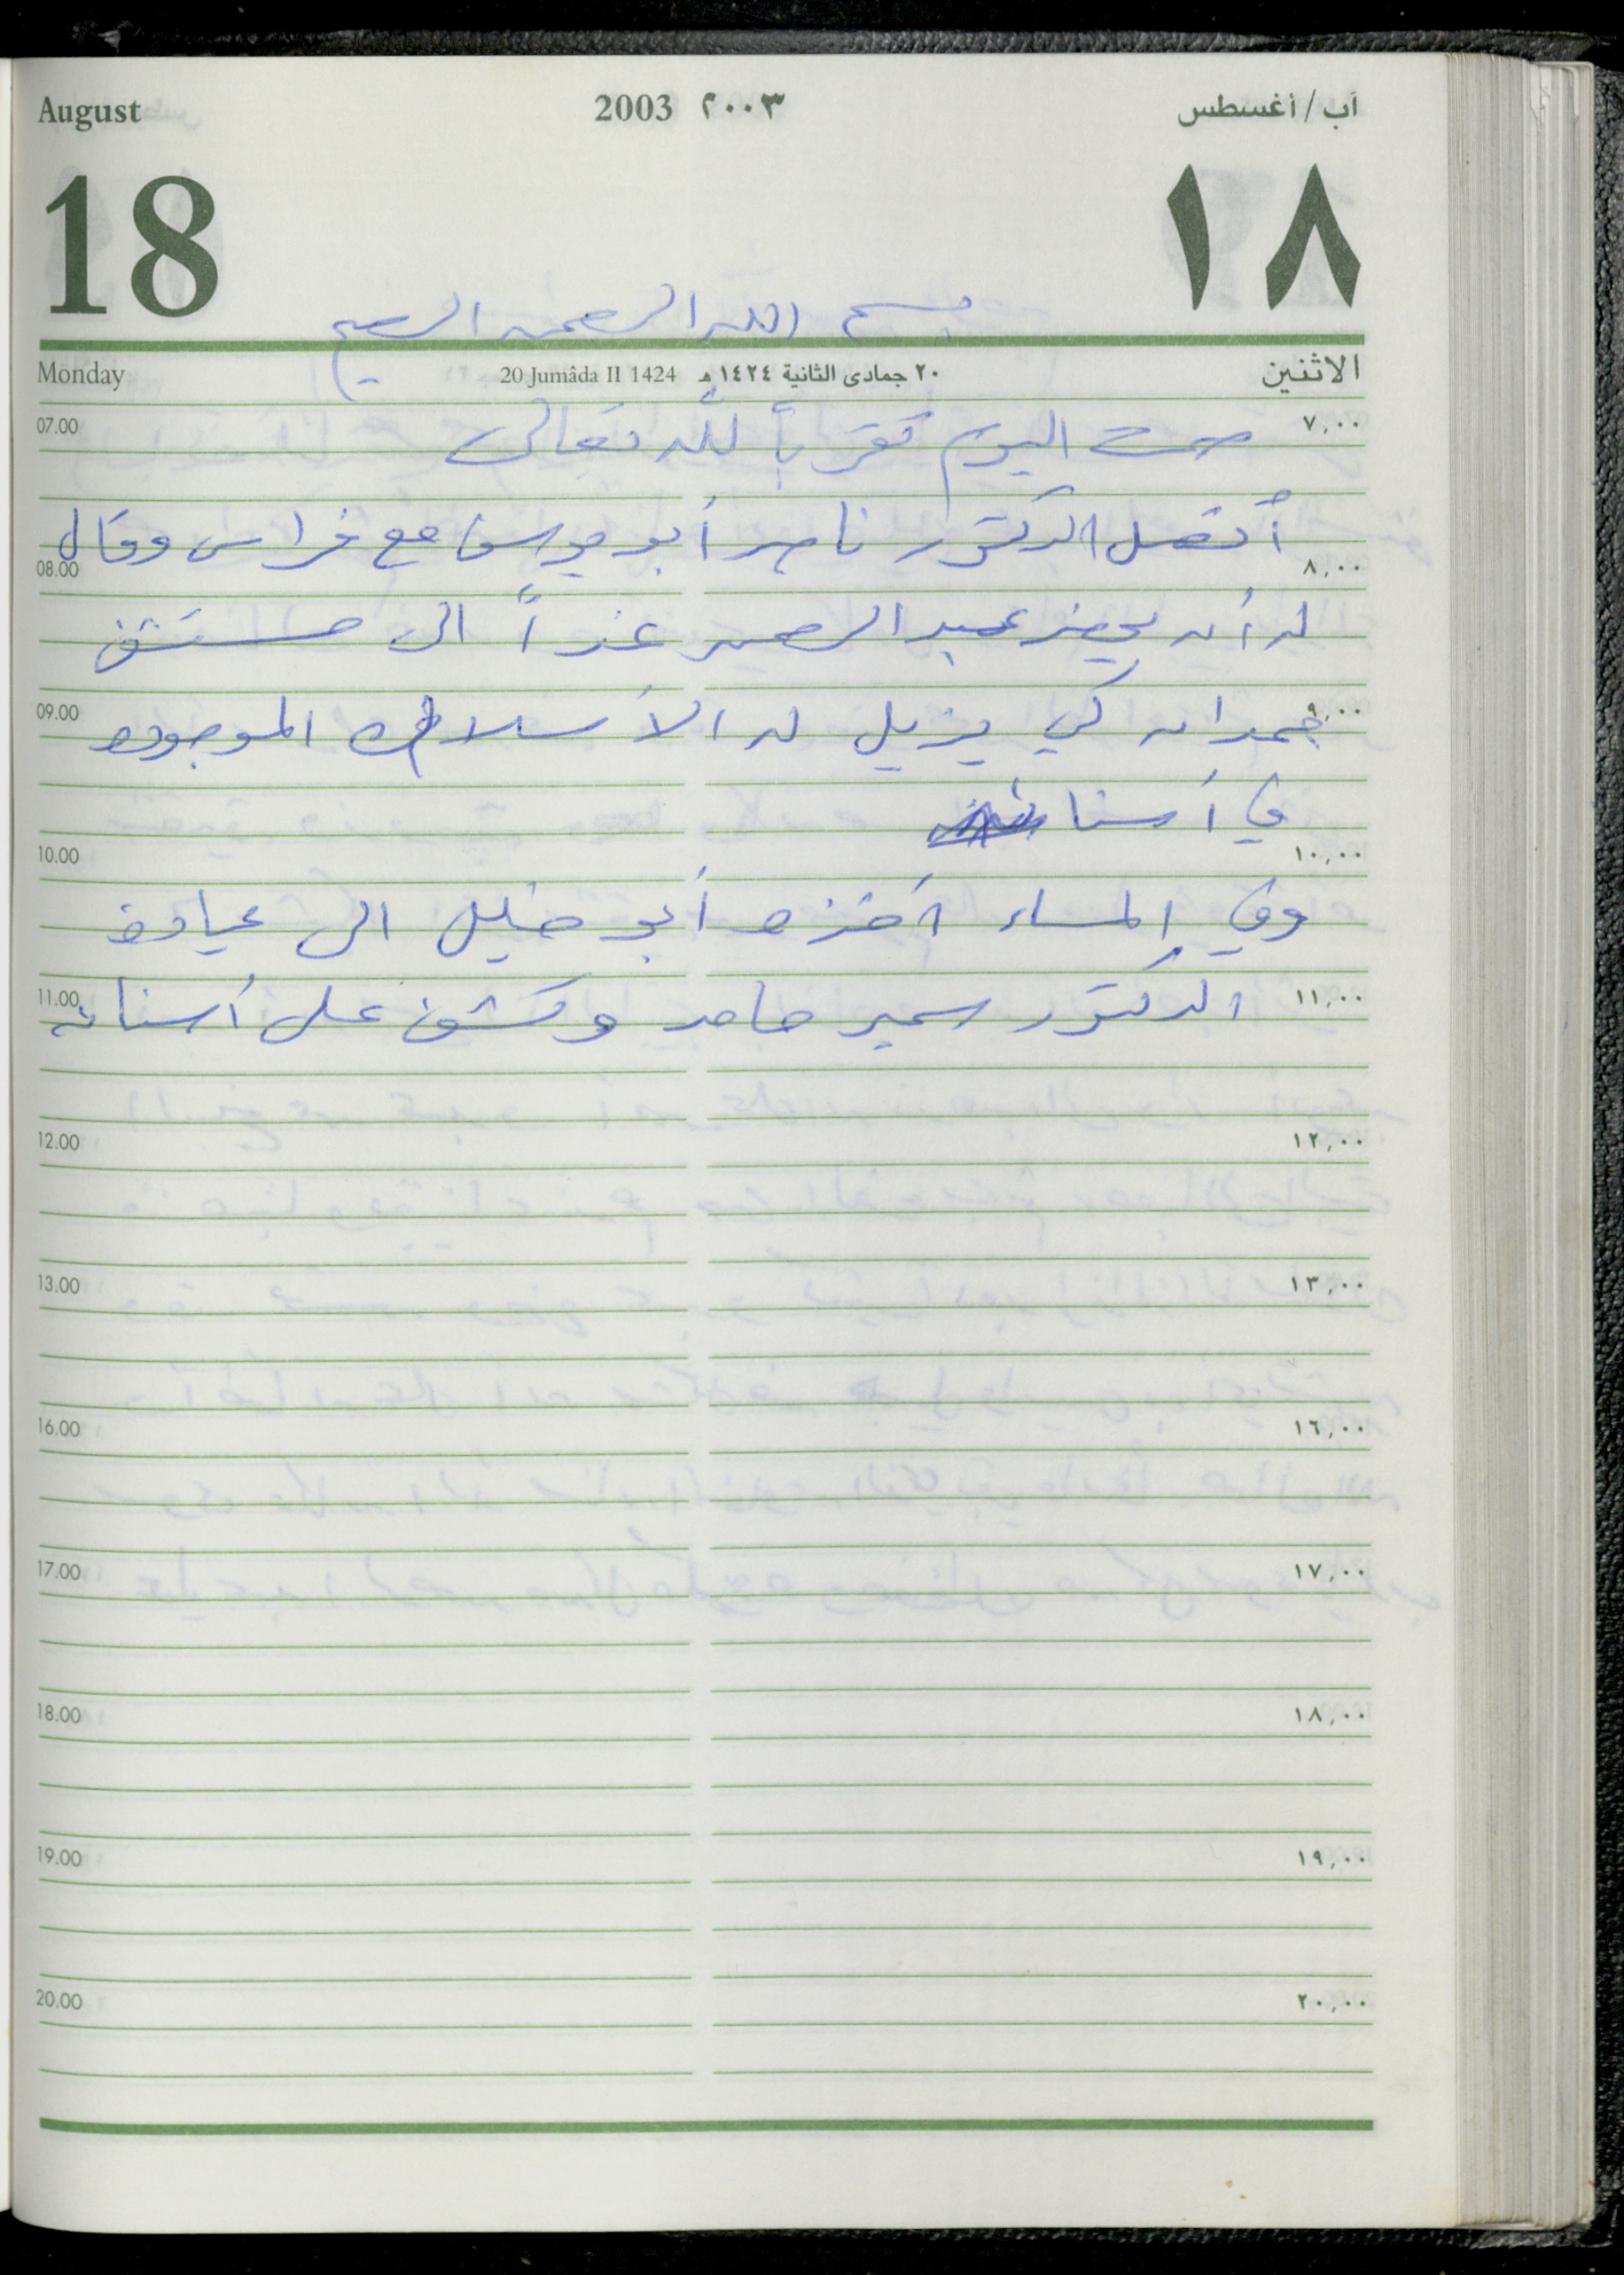 August 2003 ٢٠٠٣ آب/أغسطس
18 ١٨
بسم الله الرحمن الرحيم
Monday 20 Jumâda II 1424 ٢٠ جمادى الثانية ١٤٢٤ هـ الاثنين
07.00 صمت اليوم تقرباً لله تعالى ٧,٠٠
أتصل الدكتور ناصر أبو يوسف مع فراس وقال
08.00 ٨,٠٠
له أن يحضر عبد الرحمن غداً الى مستشفى
09.00 حمدان كي يزيل له الأسلاك الموجوده ٩,٠٠
في أسنا
10.00 ١٠,٠٠
وفي المساء أخذه أبو خليل الى عيادة
11.00 الدكتور سمير حامد وكشف على أسنانه ١١,٠٠
12.00 ١٢,٠٠
13.00 ١٣,٠٠
16.00 ١٦,٠٠
17.00 ١٧,٠٠
18.00 ١٨,٠٠
19.00 ١٩,٠٠
20.00 ٢٠,٠٠